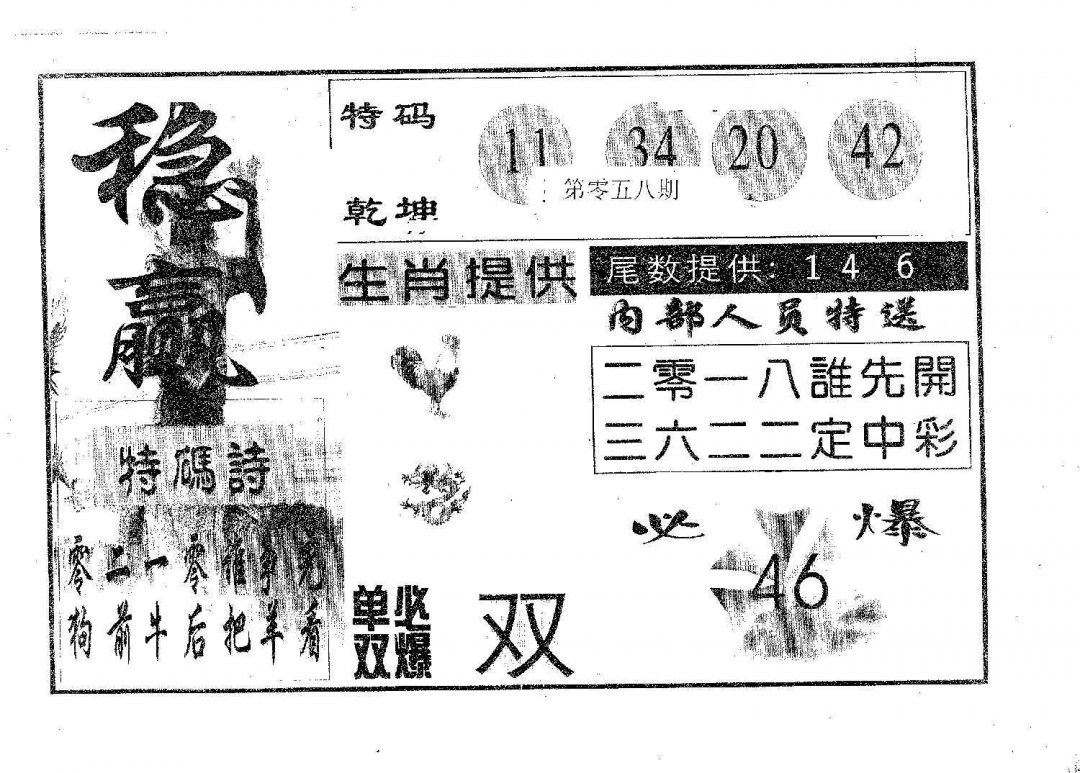 稳
赢
特码
乾坤
11 34 20 42
第零五八期
生肖提供
尾数提供: 1 4 6
内部人员特送
二零一八誰先開
三六二二定中彩
特碼詩
零二一零誰争光
狗前牛后把羊看
必爆
46
单必
双爆
双